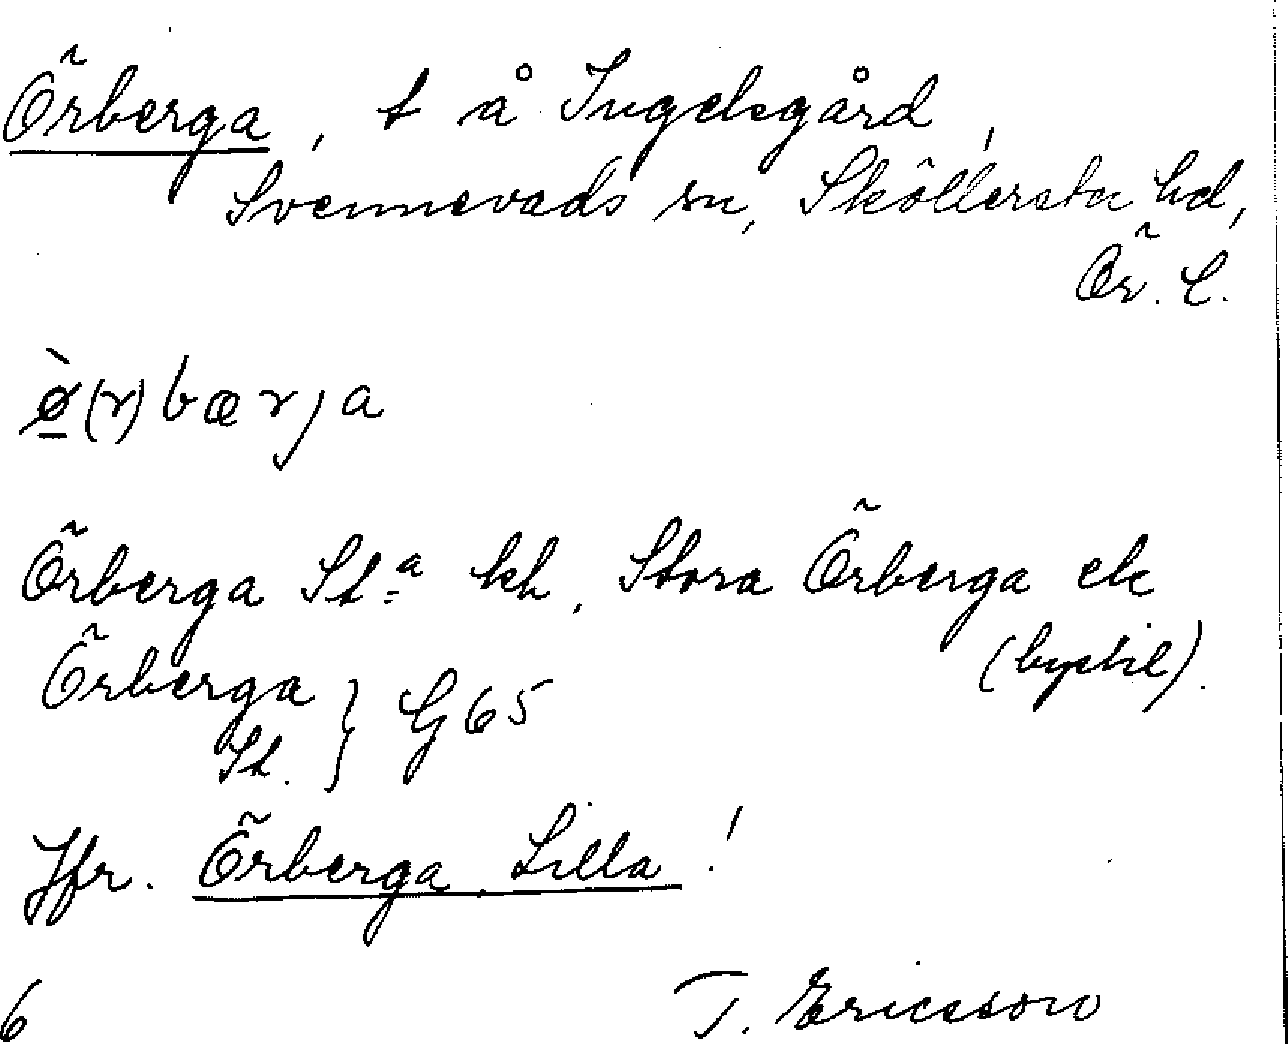 Örberga, t å Ingelsgård,
Svennevads sn, Sköllersta hd,
Ör. l.
ø̀(r)bærja
Örberga St:a kh, Stora Örberga ek
(bystil).
Örberga } G65
St.
Jfr. Örberga, Lilla!
6 T. Ericsson